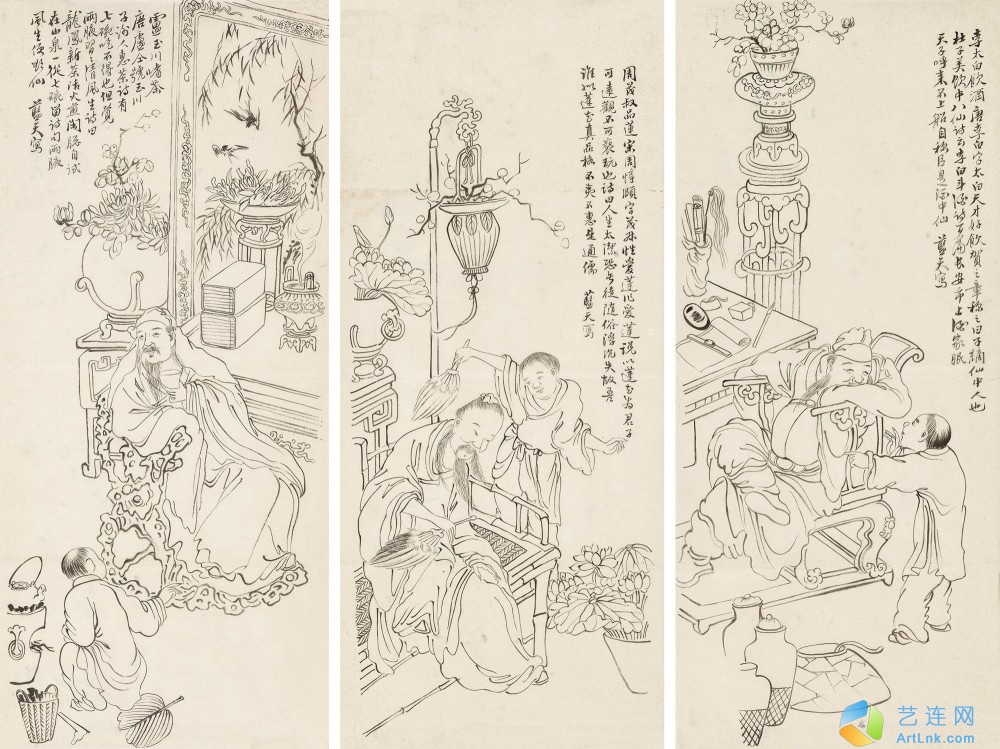 盧玉川嗜茶
唐盧仝號玉川
子謝人惠茶詩有
七碗吃不得也但覺
兩腋習習清風生詩曰
龍鳳新茶活火煎閒自試
在山泉一從七碗留詩句兩腋
風生便欲仙 藍天寫
周茂叔品蓮宋周惇頤字茂叔性愛蓮作愛蓮說以蓮花為君子
可遠觀不可褻玩也詩曰人生太潔恐無徒隨俗浮沉失故吾
誰似蓮花真品格不夷不惠是通儒 藍天寫
李太白飲酒唐李白字太白天才好飲賀之章稱之曰子謫仙中人也
杜子美飲中八仙詩云李白斗酒詩百篇長安市上酒家眠
天子呼來不上船自稱臣是酒中仙 藍天寫
艺连网
ArtLnk.com